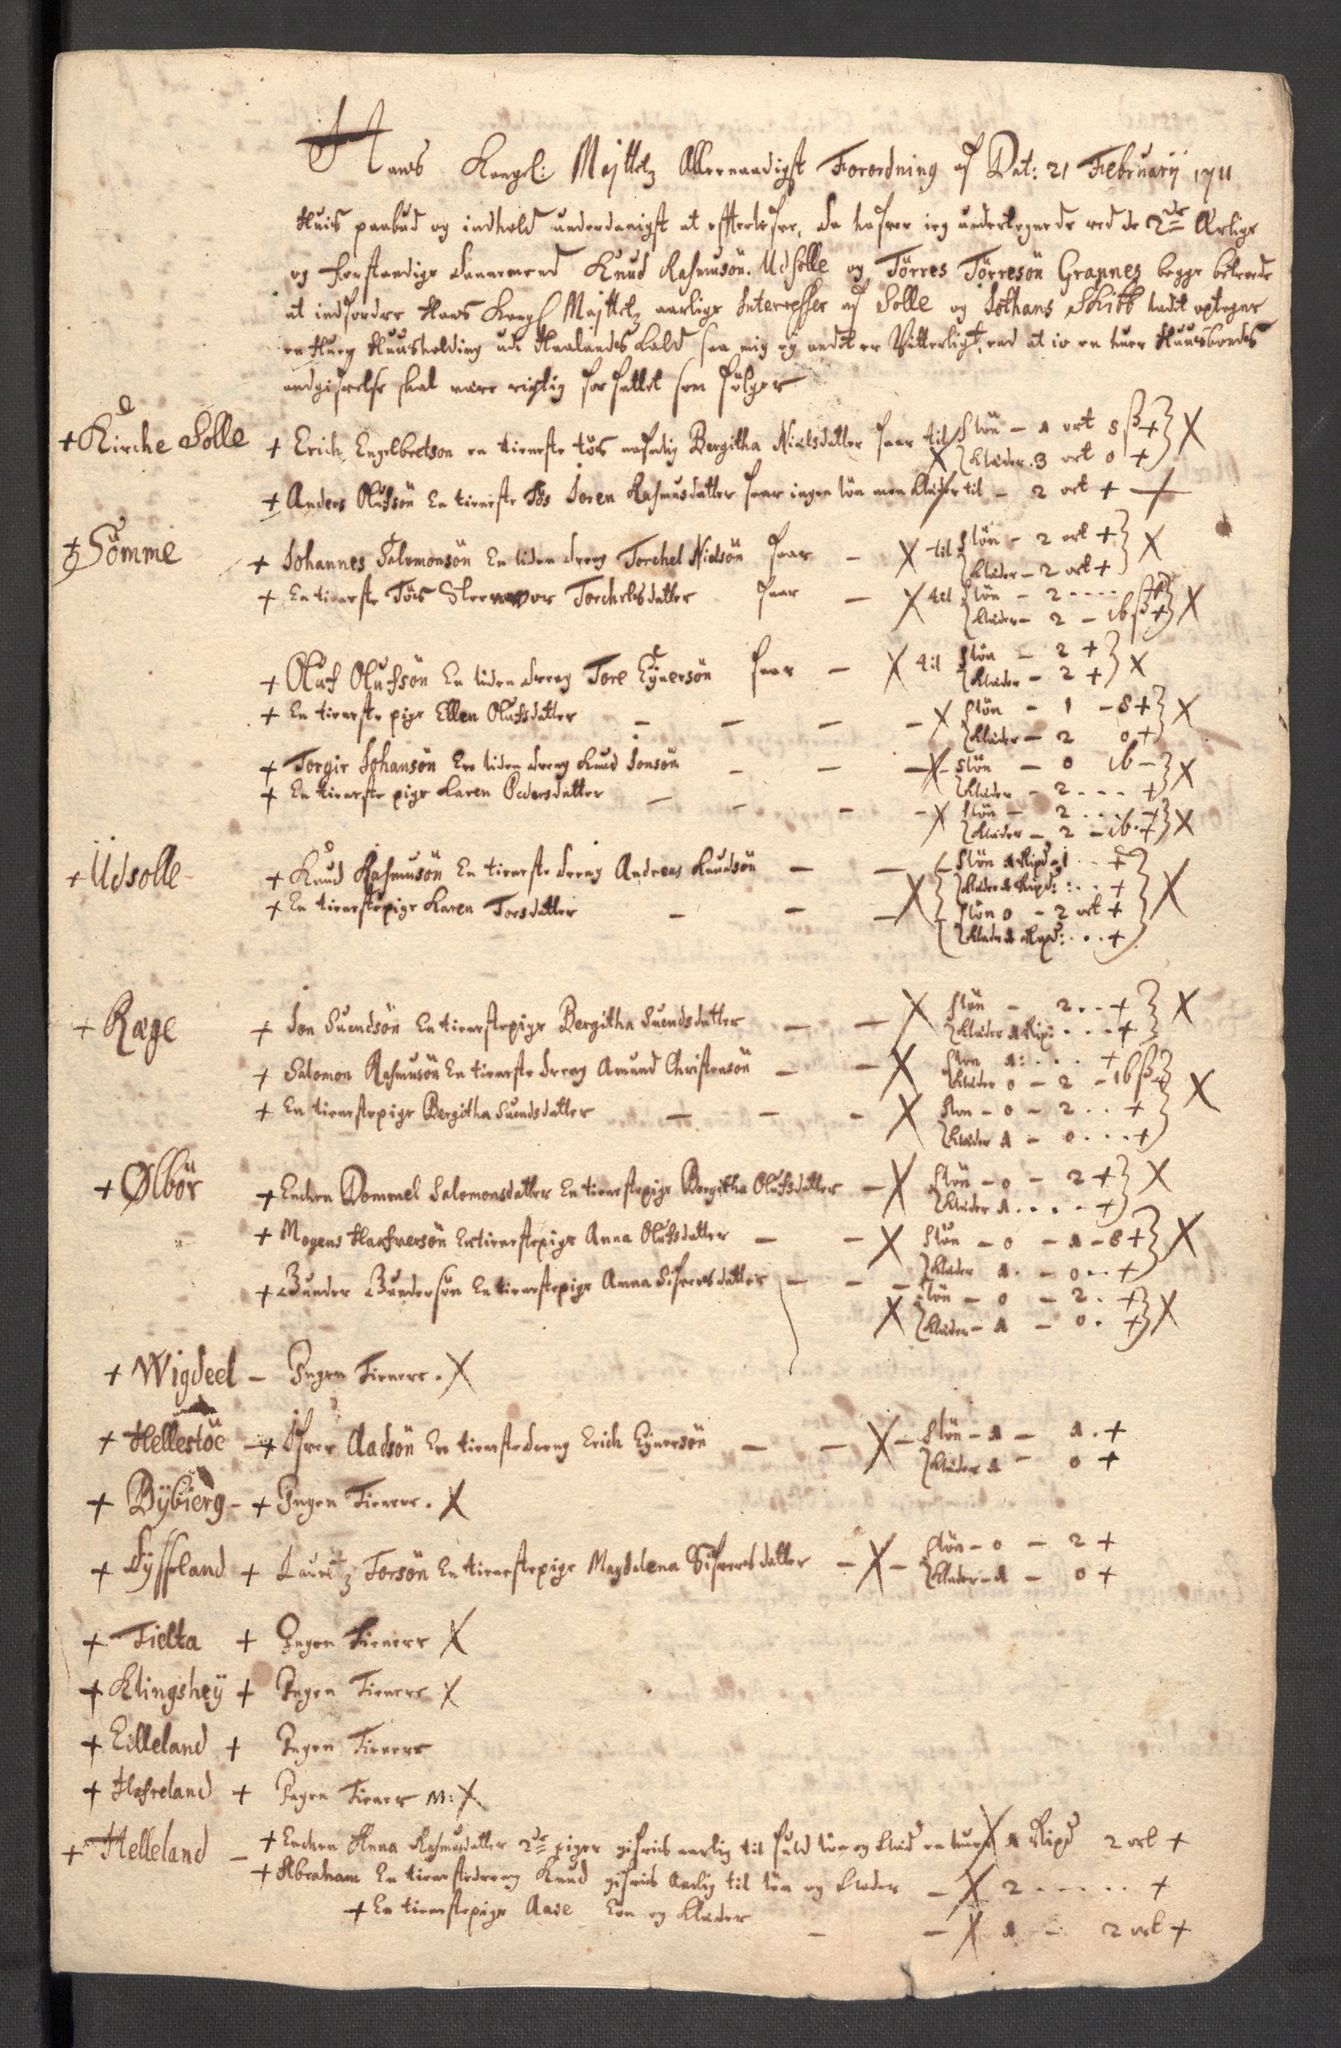 Hans Kongel: Mayttz Allernaadigst Forordning af Dat: 21 Februarij 1711
Huis paabud og indhold underdanigst at effterlefve, da hafver ieg undertegnede ved de 2de Ærlige
og forstandige dannemend Knud Rasmusön Udsolle og Törres Törresön Grannes begge betroede
at indfordre Hans Kongl Mayttz aarlige Interesser af Solle og Sothans Skibb ladet optegne
en huer Huusholding udi Haalands Lald saa mig ey andet er Vitterligt, end at io en huer Huusbondes
angifvelse skal være rigtig forfattet som fölger
+ Kirche Solle + Erich Engelbretson en tieneste tös nafnlig Bergitha Nielsdatter faar til X { Lön - 1 ort 8 ß + } X
{ Klæder. 3 ort 0 +
+ Anders Olufsön En tieneste Tös Joren Rasmusdatter faar ingen lön men Klæder til - 2 ort +
+ Sömme + Johannes Salomonsön En liden dreng Torchel Nielsön faar - X til { Lön - 2 ort + } X
{ Klæder - 2 ort +
+ En tieneste Tös Torchelsdatter faar - X til { Lön - 2 .... + } X
{ Klæder - 2 - 16 ß +
+ Oluf Olufsön En liden dreng Tore Eÿnersön faar - X til { Lön - 2 + } X
{ Klæder - 2 +
+ En tieneste pige Ellen Olufsdatter - - - - X { Lön - 1 - 8 + } X
{ Klæder - 2 0 +
+ Torgir Johansön En liden dreng Knud Jonsön - - - X - { Lön - 0 16 - } X
{ Klæder - 2 .... +
+ En tieneste pige Karen Pedersdatter - - - - X { Lön - 2 ... + } X
{ Klæder - 2 - 16. +
+ Udsolle + Knud Rasmusön En tieneste dreng Andreas Knudsön - - { Lön 1 Ripd - 1 .. +
{ Klæder 1 Ripd: ... +
+ En tienestepige Karen Torsdatter - - - X { Lön 0 - 2 ort + } X
{ Klæder 1 Ripd: ... +
+ Ræge + Jon Suendsön En tienestepige Bergitha Suendsdatter - - X { Lön - 2 .. + } X
{ Klæder 1 Rip: .... +
+ Salomon Rasmusön En tieneste dreng Amund Christensön - - X Lön 1: .... +
Klæder 0 - 2 - 16 ß + } X
+ En tienestepige Bergitha Suendsdatter - - - X { Lön - 0 - 2 .. +
{ Klæder 1 - 0 ... +
+ Ølbör + Enchen Dommel Salomonsdatter En tienestepige Bergitha Olufsdatter - X { Lön - 0 - 2 + } X
{ Klæder 1 .... +
+ Mogens Hafversön En tienestepige Anna Olufsdatter - - X { Lön - 0 - 1 - 8 + } X
{ Klæder 1. - 0 .. +
+ Gunder Gundersön En tienestepige Anna Sifversdatter - - - Lön - 0 - 2 . +
X { Klæder - 1 - 0 . + } X
+ Wigdeel - Ingen Tienere. X
+ Hellestöe - + Ifver Aadsön En tienestedreng Erich Eÿnersön - - X - { Lön - 1 - 1 . +
{ Klæder 1 - 0 +
+ Bÿbierg - + Ingen Tienere. X
+ Tÿsseland + Lauritz Torsön En tienestepige Magdalena Sifversdatter - X - { Lön - 0 - 2 +
{ Klæder - 1 - 0 +
+ Tielta + Ingen Tienere X
+ Klingsheÿ + Ingen Tienere X
+ Eilleland + Ingen Tienere
+ Hafveland + Ingen Tiener M: X
+ Helleland - + Enchen Anna Rasmusdatter 2de piger gifvis aarlig til fuld lön og Klæd en huer X 1 Ripd 2 ort +
+ Abraham En tienestedreng Knud gifvis aarlig til lön og Klæder - X 2 ..... +
+ En tienestepige Aase Lön og Klæder - - X 1 - 2 ort +